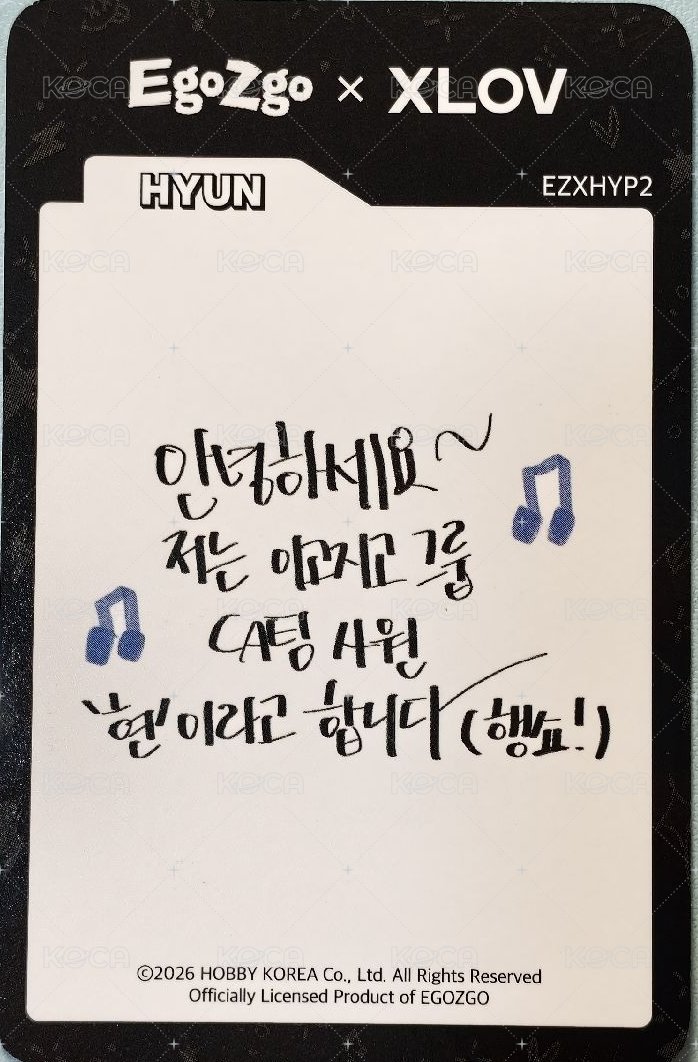 EgoZgo × XLOV
HYUN
EZXHYP2
안녕하세요~
저는 이고지고 그룹
CA팅 사원
'현'이라고 합니다 (행쇼!)
©2026 HOBBY KOREA Co., Ltd. All Rights Reserved
Officially Licensed Product of EGOZGO
KOCA